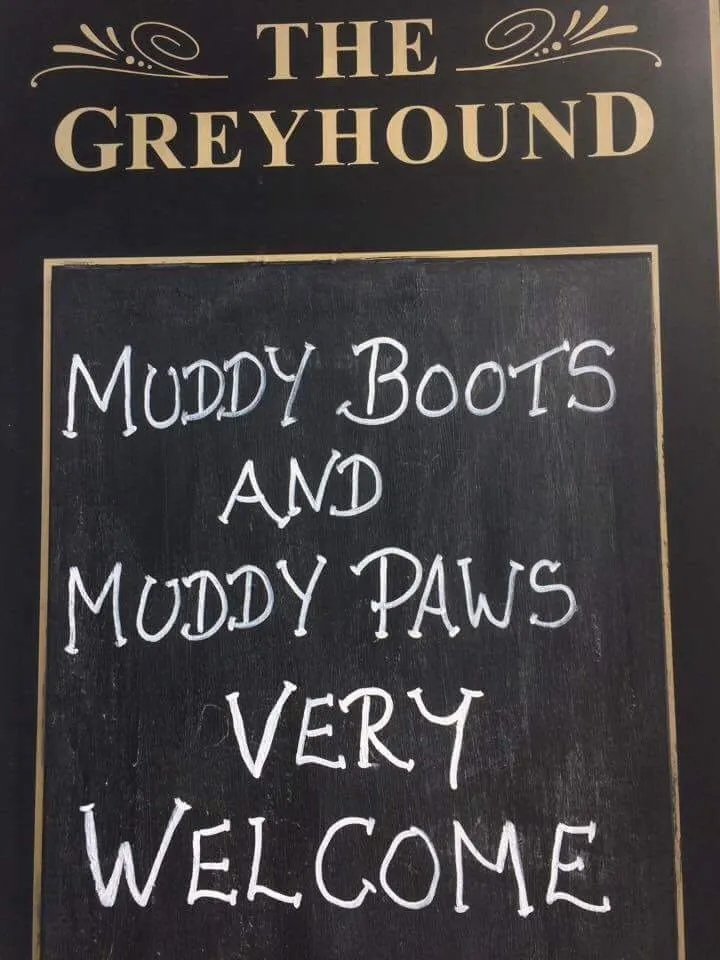 THE
GREYHOUND
MUDDY BOOTS
AND
MUDDY PAWS
VERY
WELCOME